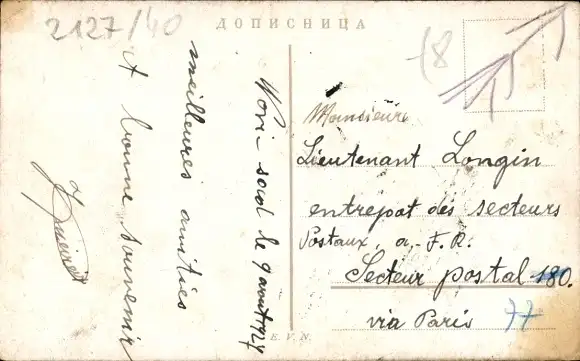 2127/40
ДОПИСНИЦА
Novi-Sad le 9 août 1927
meilleures amitiés
& bonne souvenir
18
Monsieure
Lieutenant Longin
entrepot des secteurs
Postaux, a. F. R.
Secteur postal 180.
via Paris 77
E. V. N.